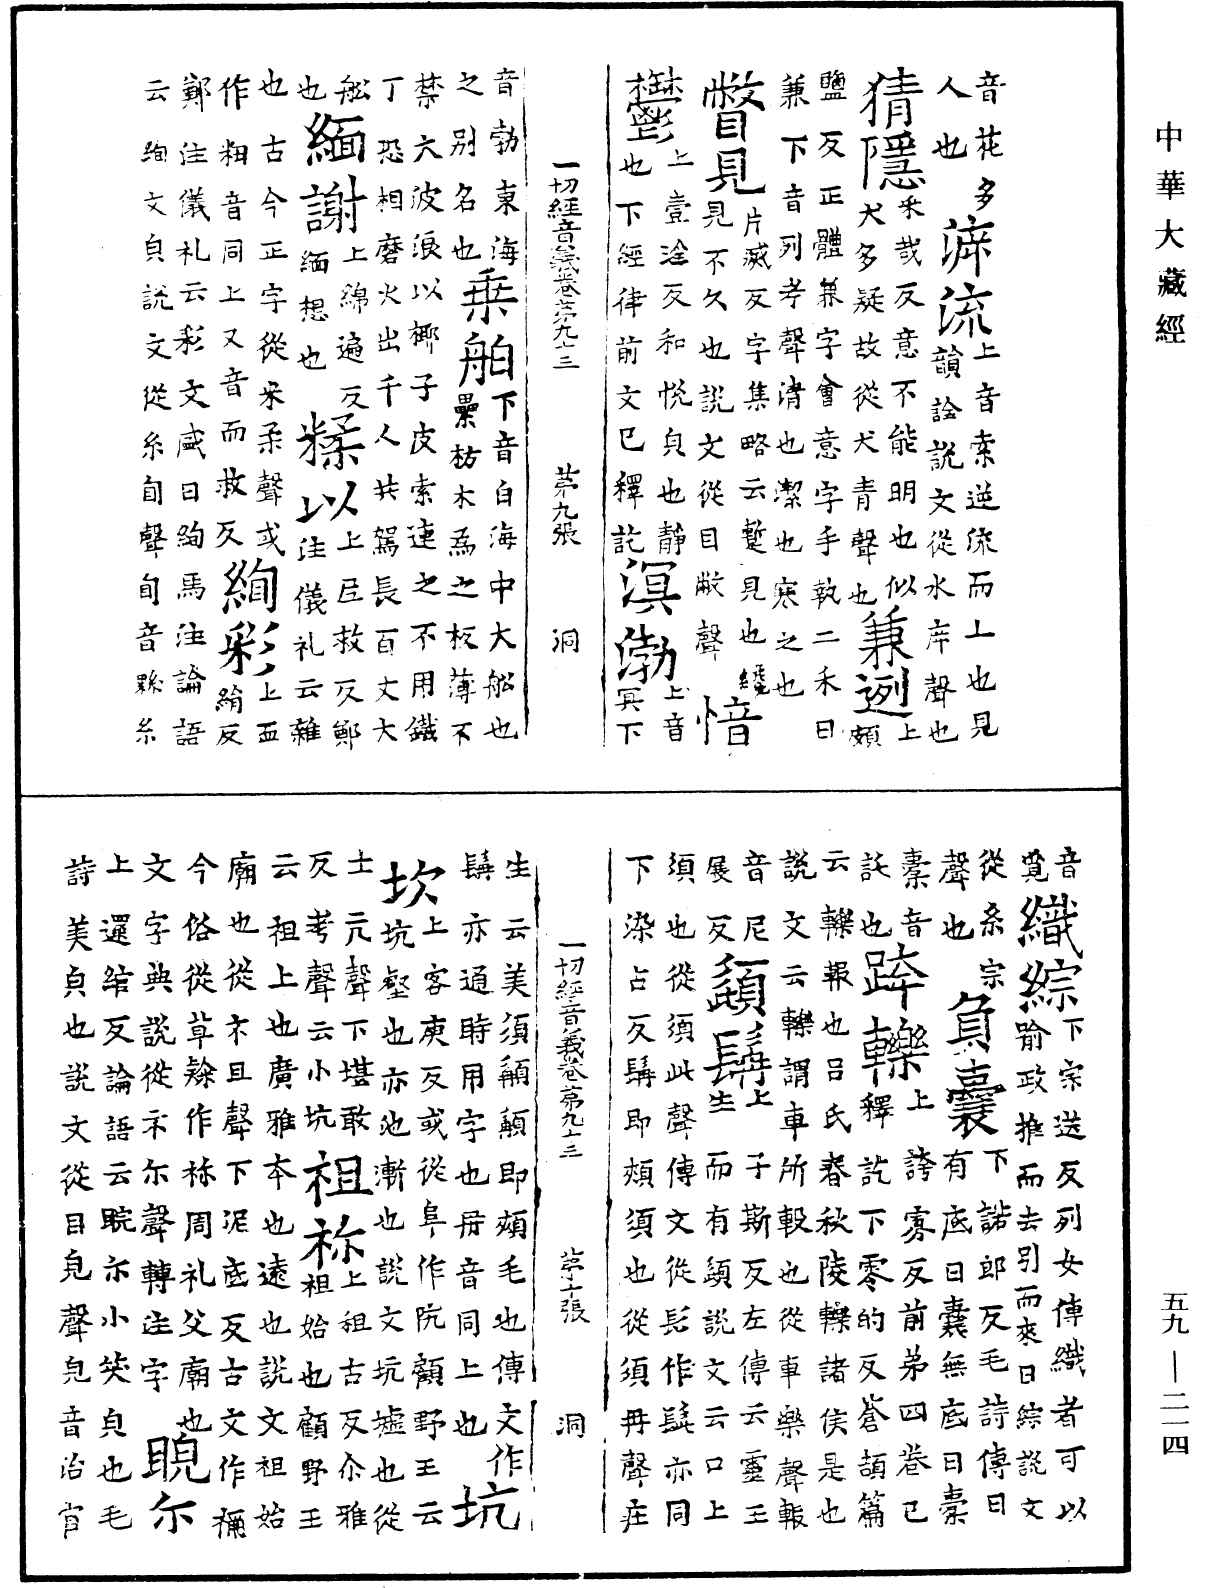 中華大藏經
音花多泝流上音素逆流而上也見
人也韻詮說文從水㡿聲也
猜隱采哉反意不能明也似
犬多疑故從犬青聲也兼迾上頰
鹽反正體兼字會意字手執二禾曰
兼下音列考聲清也潔也寒之也
瞥見片滅反字集略云蹔見也纔
見不久也說文從目敝聲愔
鬱上壹淫反和悅皃也靜
也下經律前文已釋訖溟渤上音
冥下
一切經音義卷第九十三 第九張 洞
音勃東海乗舶下音白海中大舩也
之別名也㲲枋木為之板薄不
禁大波浪以椰子皮索連之不用鐵
丁恐相磨火出千人共駕長百丈大
舩也緬謝上綿遍反緬想也糅以上尼救反鄭
注儀礼云雜
也古今正字從米柔聲或
作粈音同上又音而救反絢彩上血
絹反
鄭注儀礼云彩文咸曰絢馬注論語
云絢文皃說文從糸旬聲旬音縣糸
音覓織綜下宗送反列女傳織者可以
喻政推而去引而來曰綜說文
從糸宗聲也負囊下諾郎反毛詩傳曰
有底曰囊無底曰橐
橐音託也跨轢上誇寡反前弟四卷已
釋訖下零的反蒼頡篇
云轢報也呂氏春秋陵轢諸侯是也
說文云轢謂車所輾也從車樂聲報
音尼展反頾髯上子斯反左傳云靈王
生而有頾說文云口上
須也從須此聲傳文從髟作髭亦同
下染占反髯即頰須也從須冉聲庄
一切經音義卷第九十三 第十張 洞
生云美須䫇䫇即頰毛也傳文作
髯亦通時用字也冄音同上也坑
坎上客庚反或從阜作阬顧野王云
坑壑也亦池漸也說文坑墟也從
土亢聲下堪敢反考聲云小坑祖祢上租古反尒雅
云祖始也顧野王
云祖上也廣雅本也遠也說文祖始
廟也從示且聲下泥底反古文作禰
今俗從草𥹆作祢周礼父廟也
文字典說從示尔聲轉注字睆尔
上還綰反論語云睆尔小笑皃也毛
詩美皃也說文從目皃聲皃音治官
五九—二一四